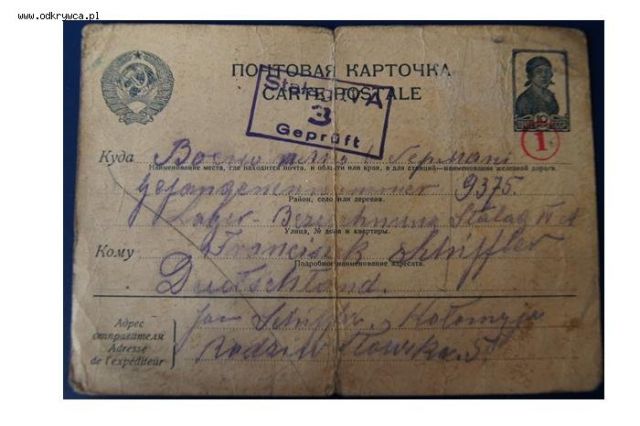 www.odkrywca.pl
ПОЧТОВАЯ КАРТОЧКА
CARTE POSTALE
Stalag IV A
3
Geprüft
1
Куда
Наименование места, где находится почта, и области или края, а для станций—наименование железной дороги.
Gefangenennummer 9375.
Район, село или деревня.
Lager-Bezeichnung Stalag IV A
Улица, № дома и квартиры.
Кому Franciszek Schiffler
Подробное наименование адресата.
Deutschland.
Адрес
отправителя
Adresse
de l'expéditeur
Jan Kołomyja